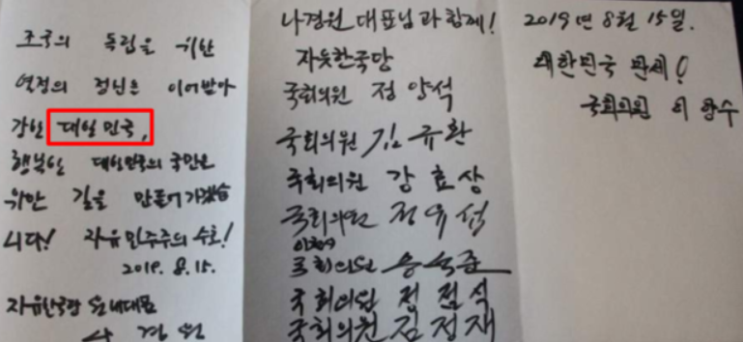 조국의 독립을 위한
열정의 정신을 이어받아
강한 대일민국,
행복한 대한민국의 국민을
위한 길을 만들어가겠습
니다! 자유민주주의 수호!
2019. 8. 15.
자유한국당 원내대표
나경원
나경원 대표님과 함께!
자유한국당
국회의원 정양석
국회의원 김규환
국회의원 강효상
국회의원 정유섭
국회의원 송석준
국회의원 정점식
국회의원 김정재
2019년 8월 15일.
대한민국 만세!
국회의원 이만수